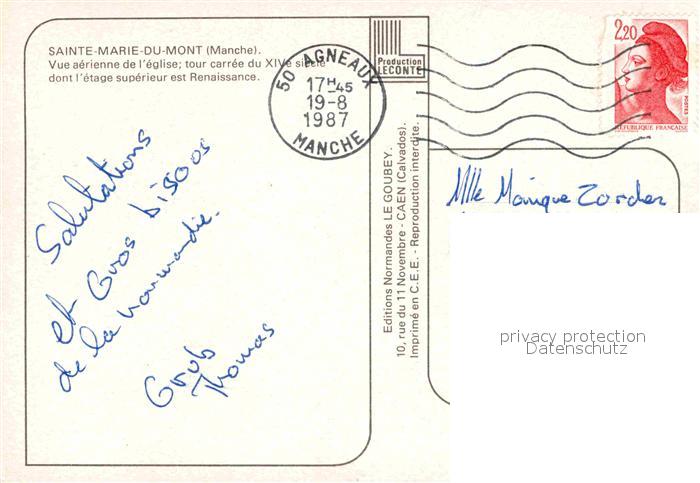 SAINTE-MARIE-DU-MONT (Manche).
Vue aérienne de l'église; tour carrée du XIVe siècle
dont l'étage supérieur est Renaissance.
Salutations
et Gros bisoos
de la normandie.
Grub
Thomas
Production
LECONTE
50 AGNEAUX
17H45
19-8
1987
MANCHE
Editions Normandes LE GOUBEY.
10, rue du 11 Novembre - CAEN (Calvados).
Imprimé en C.E.E. - Reproduction interdite.
2,20
POSTES
REPUBLIQUE FRANCAISE
Mlle Monique Zorder
privacy protection
Datenschutz